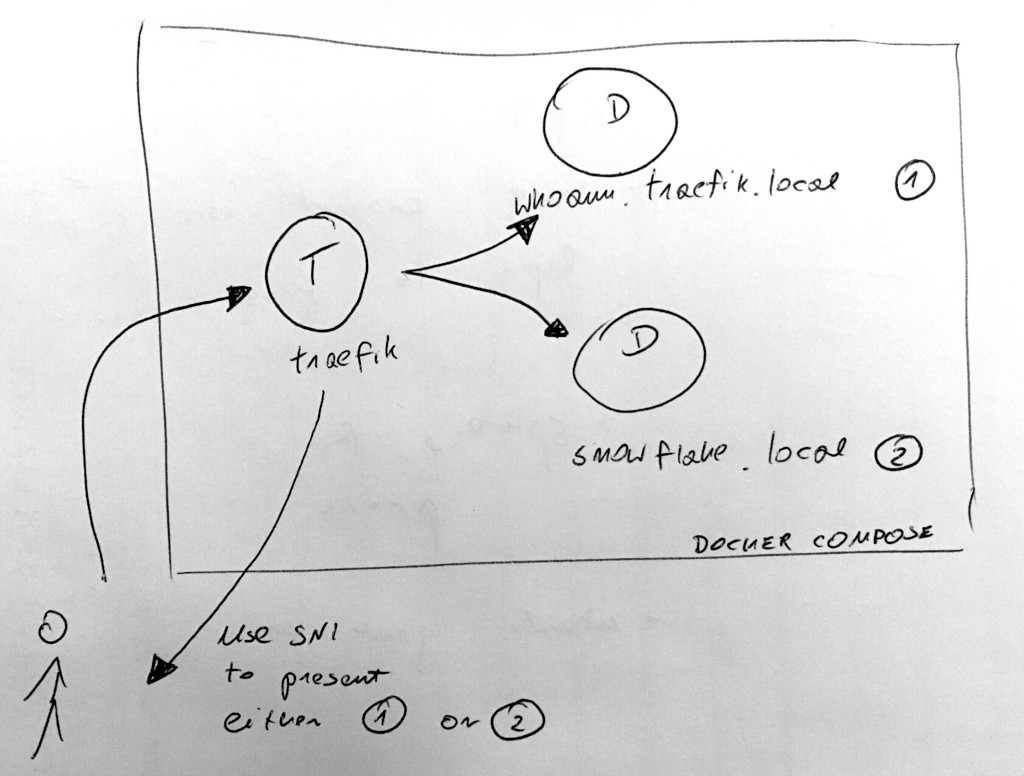 D
whoami.traefik.local ①
T
traefik
D
snowflake.local ②
DOCKER COMPOSE
Use SNI
to present
either ① or ②